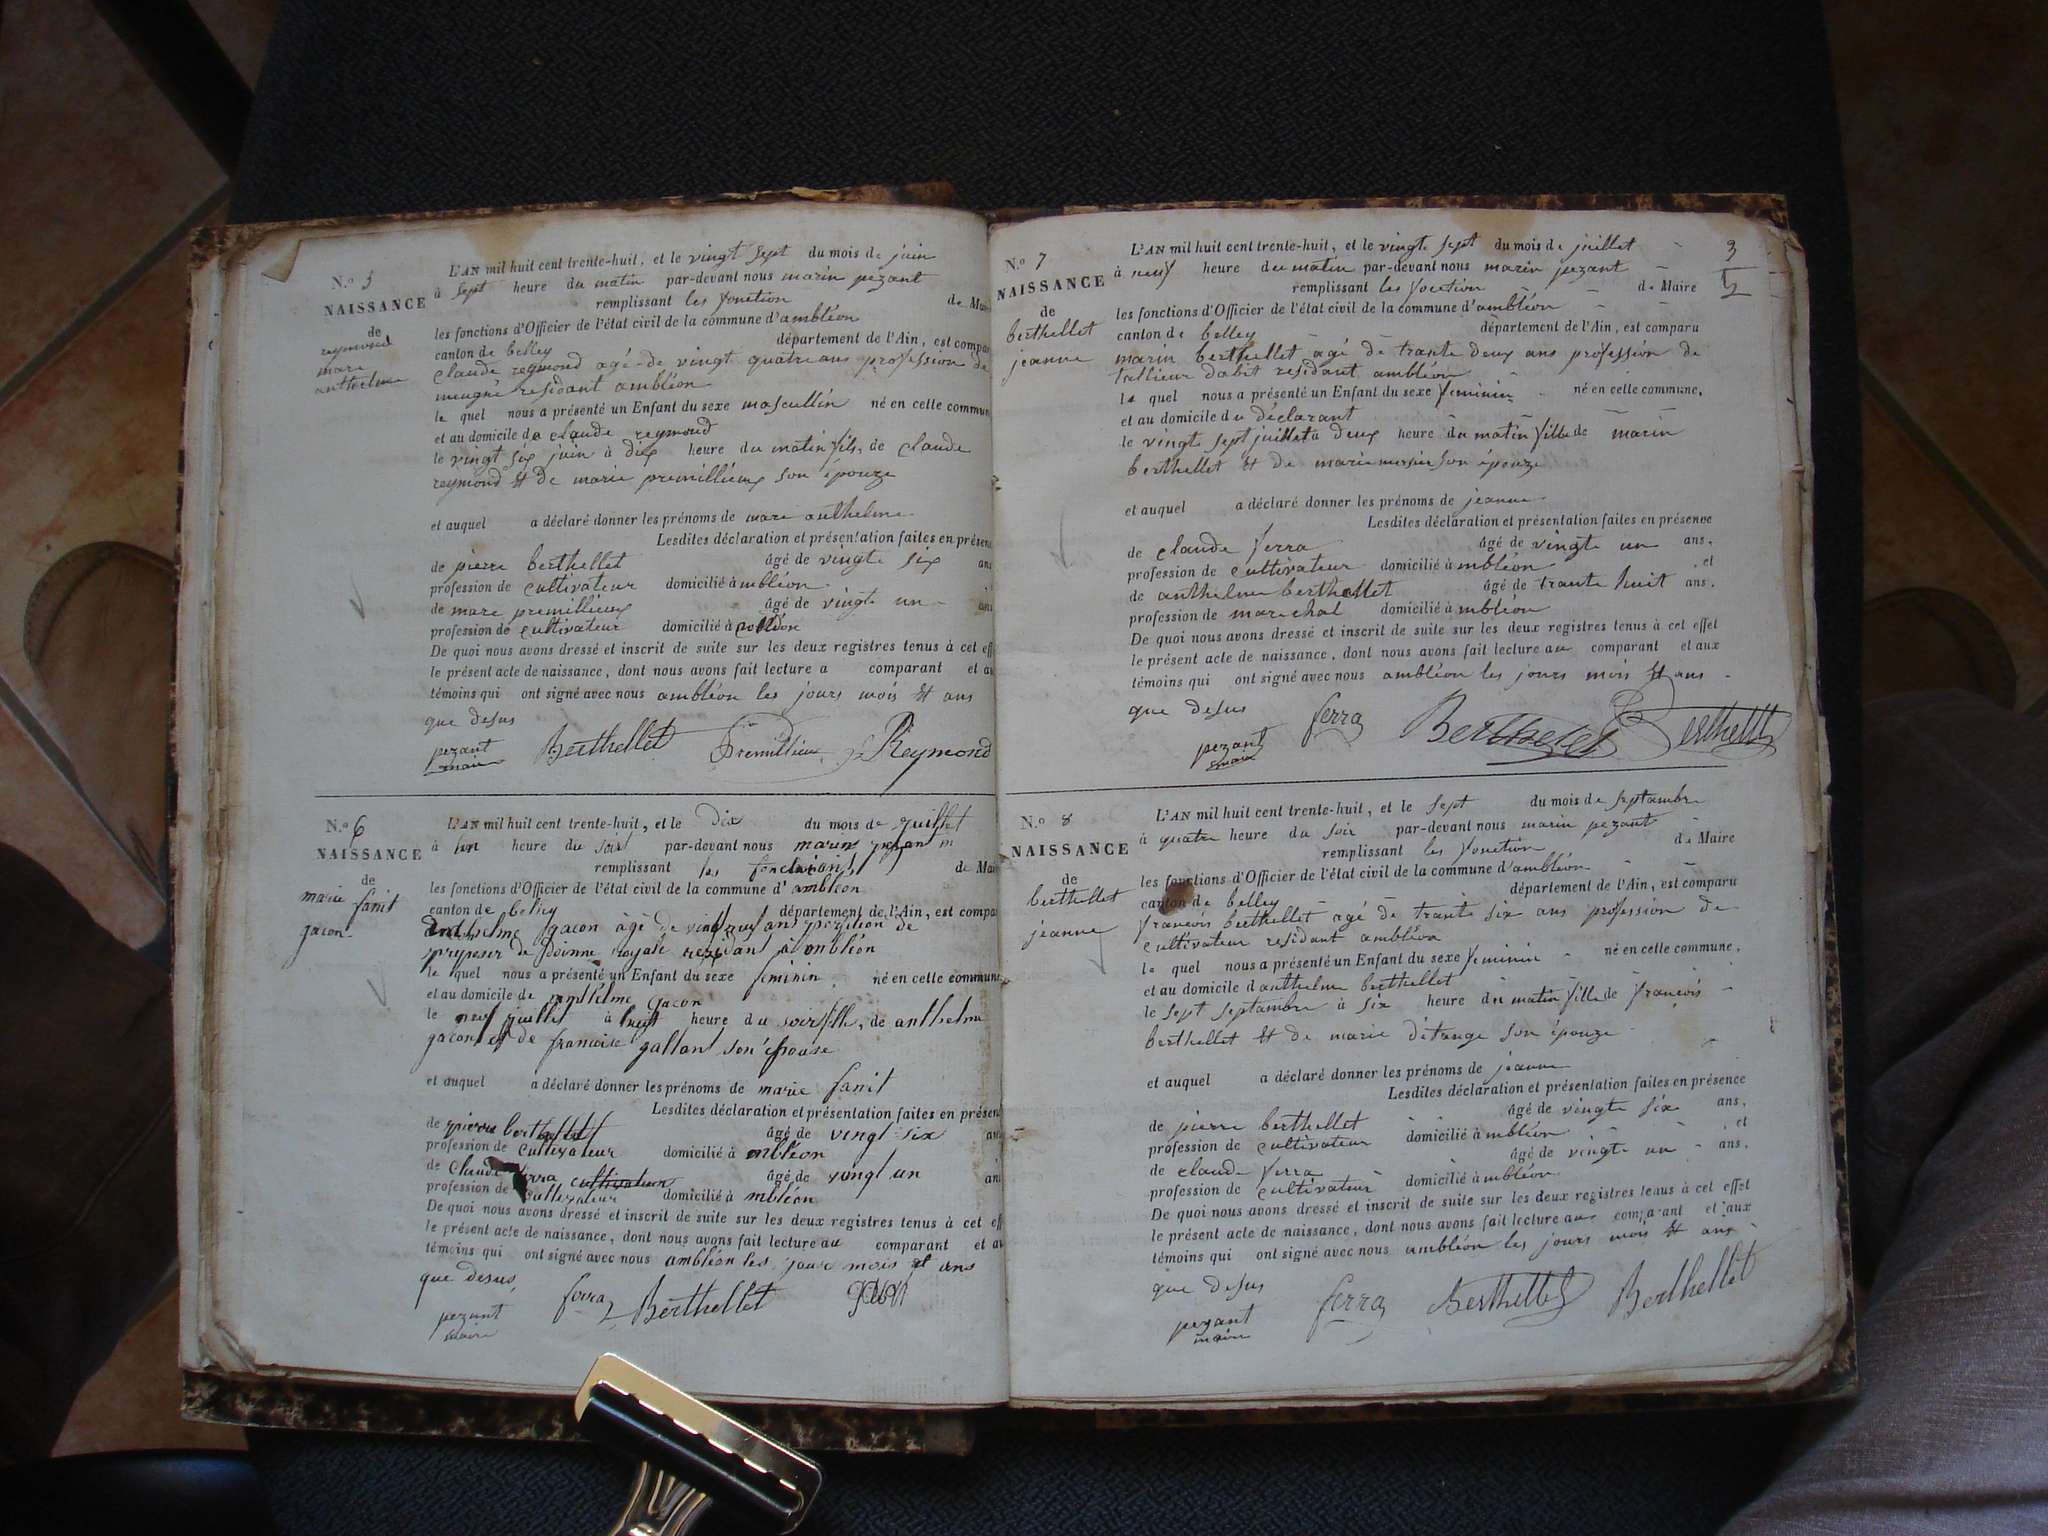 N.º 5
NAISSANCE
de
reymond
marc
anthelme
L'AN mil huit cent trente-huit, et le vingt sept du mois de juin
à sept heure du matin par-devant nous marin pezant
remplissant les fonction de Maire
les fonctions d'Officier de l'état civil de la commune d'ambléon
canton de belley département de l'Ain, est compar
claude reymond agé de vingt quatre ans profession de
meugné residant ambléon
le quel nous a présenté un Enfant du sexe mascullin né en cette commun
et au domicile de claude reymond
le vingt six juin à dix heure du matin fils, de claude
reymond et de marie premillieux son épouze
et auquel a déclaré donner les prénoms de marc anthelme
Lesdites déclaration et présentation faites en présenc
de pierre berthellet âgé de vingte six ans
profession de cultivateur domicilié à mbléon
de marc premillieux âgé de vingte un ans
profession de cultivateur domicilié à
De quoi nous avons dressé et inscrit de suite sur les deux registres tenus à cet eff
le présent acte de naissance, dont nous avons fait lecture a comparant et au
témoins qui ont signé avec nous ambléon les jours mois et ans
que desus
pezant Berthellet Premillieux Reymond
maire
N.º 6
NAISSANCE
de
marie fanit
gacon
L'AN mil huit cent trente-huit, et le Dix du mois de juillet
à un heure du soir par-devant nous marin pezan
remplissant les fonctions de Mai
les fonctions d'Officier de l'état civil de la commune d'ambléon
canton de belley département de l'Ain, est compar
anthelme gacon âgé de vint neuf ans profition de
preposer de Doinne royale residan à ombléon
le quel nous a présenté un Enfant du sexe feminin né en cette commune
et au domicile de anthelme gacon
le neuf juillet à heure du soir fille, de anthelme
gacon et de francoise gallan son épouse
et auquel a déclaré donner les prénoms de marie fanit
Lesdites déclaration et présentation faites en présen
de pierre berthellet âgé de vingt six ans
profession de cultivateur domicilié à mbléon
de claude ferra cultivateur âgé de vingt un ans
profession de cultivateur domicilié à mbléon
De quoi nous avons dressé et inscrit de suite sur les deux registres tenus à cet eff
le présent acte de naissance, dont nous avons fait lecture au comparant et au
témoins qui ont signé avec nous ambléon les jour mois et ans
que desus
pezant ferra Berthellet
maire
3
N.º 7
NAISSANCE
de
berthellet
jeanne
L'AN mil huit cent trente-huit, et le vingte sept du mois de juillet
à neuf heure du matin par-devant nous marin pezant
remplissant les fonction de Maire
les fonctions d'Officier de l'état civil de la commune d'ambléon
canton de belley département de l'Ain, est comparu
marin berthellet agé de trante deux ans profession de
tallieur dabit residant ambléon
le quel nous a présenté un Enfant du sexe feminin né en cette commune,
et au domicile du déclarant
le vingte sept juillet à deux heure du matin fille de marin
berthellet et de marie son épouze
et auquel a déclaré donner les prénoms de jeanne
Lesdites déclaration et présentation faites en présence
de claude ferra âgé de vingte un ans,
profession de cultivateur domicilié à mbléon et
de anthelme berthellet âgé de trante huit ans,
profession de marechal domicilié à mbléon
De quoi nous avons dressé et inscrit de suite sur les deux registres tenus à cet effet
le présent acte de naissance, dont nous avons fait lecture au comparant et aux
témoins qui ont signé avec nous ambléon les jours mois et ans
que desus
pezant ferra Berthelet Berthellet
maire
N.º 8
NAISSANCE
de
berthellet
jeanne
L'AN mil huit cent trente-huit, et le sept du mois de septambre
à quatre heure du soir par-devant nous marin pezant
remplissant les fonction de Maire
les fonctions d'Officier de l'état civil de la commune d'ambléon
canton de belley département de l'Ain, est comparu
francois berthellet agé de trante six ans profession de
cultivateur residant ambléon
le quel nous a présenté un Enfant du sexe feminin né en cette commune,
et au domicile d anthelme berthellet
le sept septambre à six heure du matin fille de françois
berthellet et de marie détange son épouze
et auquel a déclaré donner les prénoms de jeanne
Lesdites déclaration et présentation faites en présence
de pierre berthellet âgé de vingte six ans,
profession de cultivateur domicilié à mbléon et
de claude ferra âgé de vingte un ans,
profession de cultivateur domicilié à mbléon
De quoi nous avons dressé et inscrit de suite sur les deux registres tenus à cet effet
le présent acte de naissance, dont nous avons fait lecture au comparant et aux
témoins qui ont signé avec nous ambléon les jours mois et ans
que desus
pezant ferra Berthellet Berthellet
maire